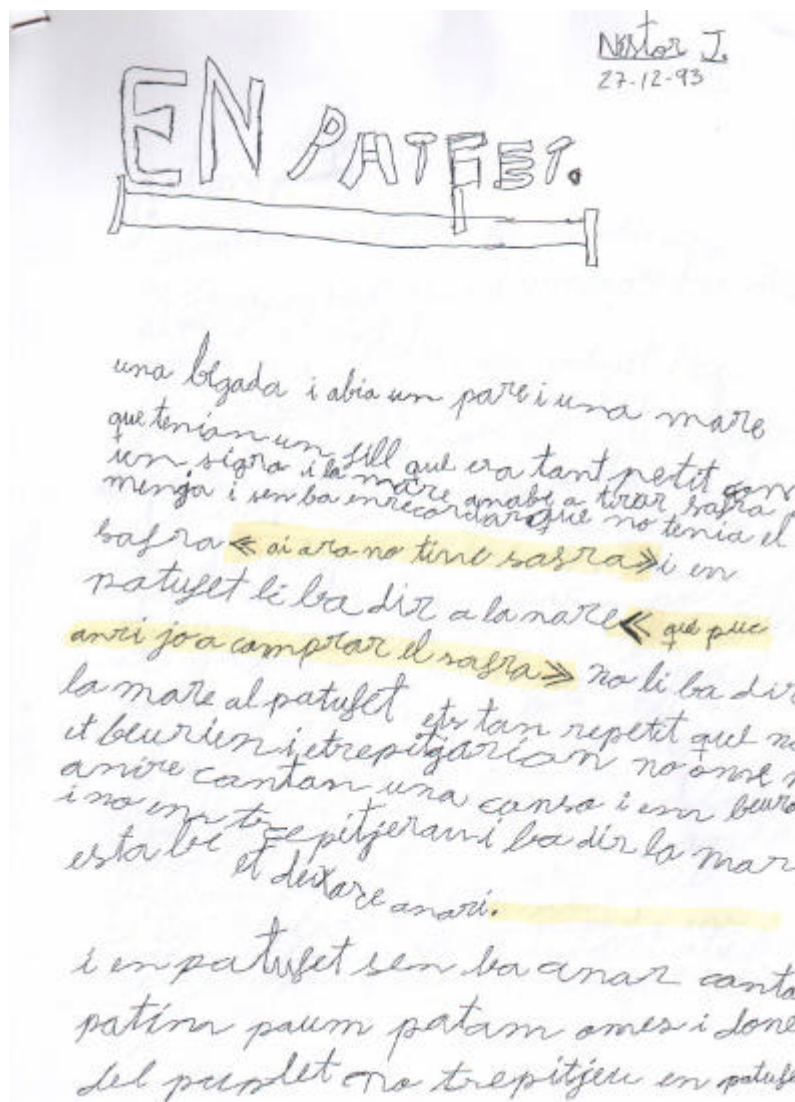 Nestor J.
27-12-93
EN PATFET.
una begada i abia un pare i una mare
que tenian un fill que era tant petit com
un sigro i la mare anaba a tirar safra
menja i sen ba enrecordar que no tenia el
safra « ai ara no tinc safra » i en
patufet li ba dir a la mare « que puc
anri jo a comprar el safra » no li ba dir
la mare al patufet ets tan repetit que no
et beurien i etrepitjarian no
anire cantan una canso i em beura
i no em trepitjeran i ba dir la mar
esta be et deixare anari.
i en patufet sen ba anar canta
patim paum patam omes i done
del puplet no trepitjeu en patufe